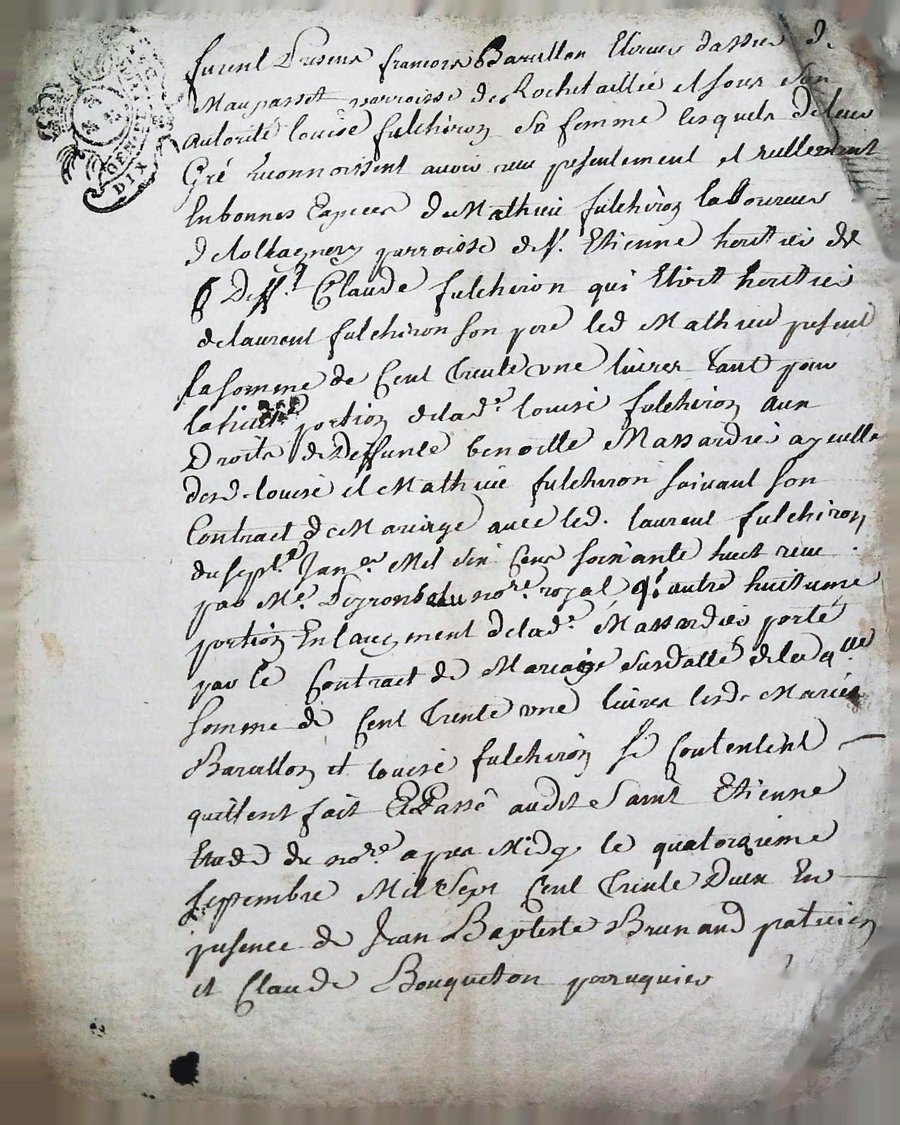 GEN
DIX
furent Presens francois Barillon
Maupasset parroisse de Rochetaillée et sous son
autorité louise fulchiron sa femme lesquels de leur
Gré reconnoissent avoir receu presentement et reellement
En bonnes Especes de Mathieu fulchiron laboureur
parroisse de St. Etienne heritier de
Defft. Claude fulchiron qui Etoit heritier
de laurent fulchiron son pere led Mathieu present
la somme de Cent Trente une livres Tant pour
la huit portion de lad.e louise fulchiron aux
Droits de Deffunte benoitte Massardier ayeulle
desd. louise et Mathieu fulchiron suivant son
Contract de Mariage avec led. laurent fulchiron
du sept.e Jan.er Mil six Cens soixante huit receu
par Me. nore. royal q. autre huitieme
portion En laugment de lad.e Massardier porté
par le Contract de Mariage susdatté de laqlle
somme de Cent Trente une livres lesd. Mariés
Barillon et louise fulchiron se Contentent
quittent fait Et Passé audit Saint Etienne
Etude du nore. apres Midy le quatorzieme
septembre Mil Sept Cent Trente Deux En
presence de Jean Baptiste Brunand paticier
et Claude Bouqueton perruquier